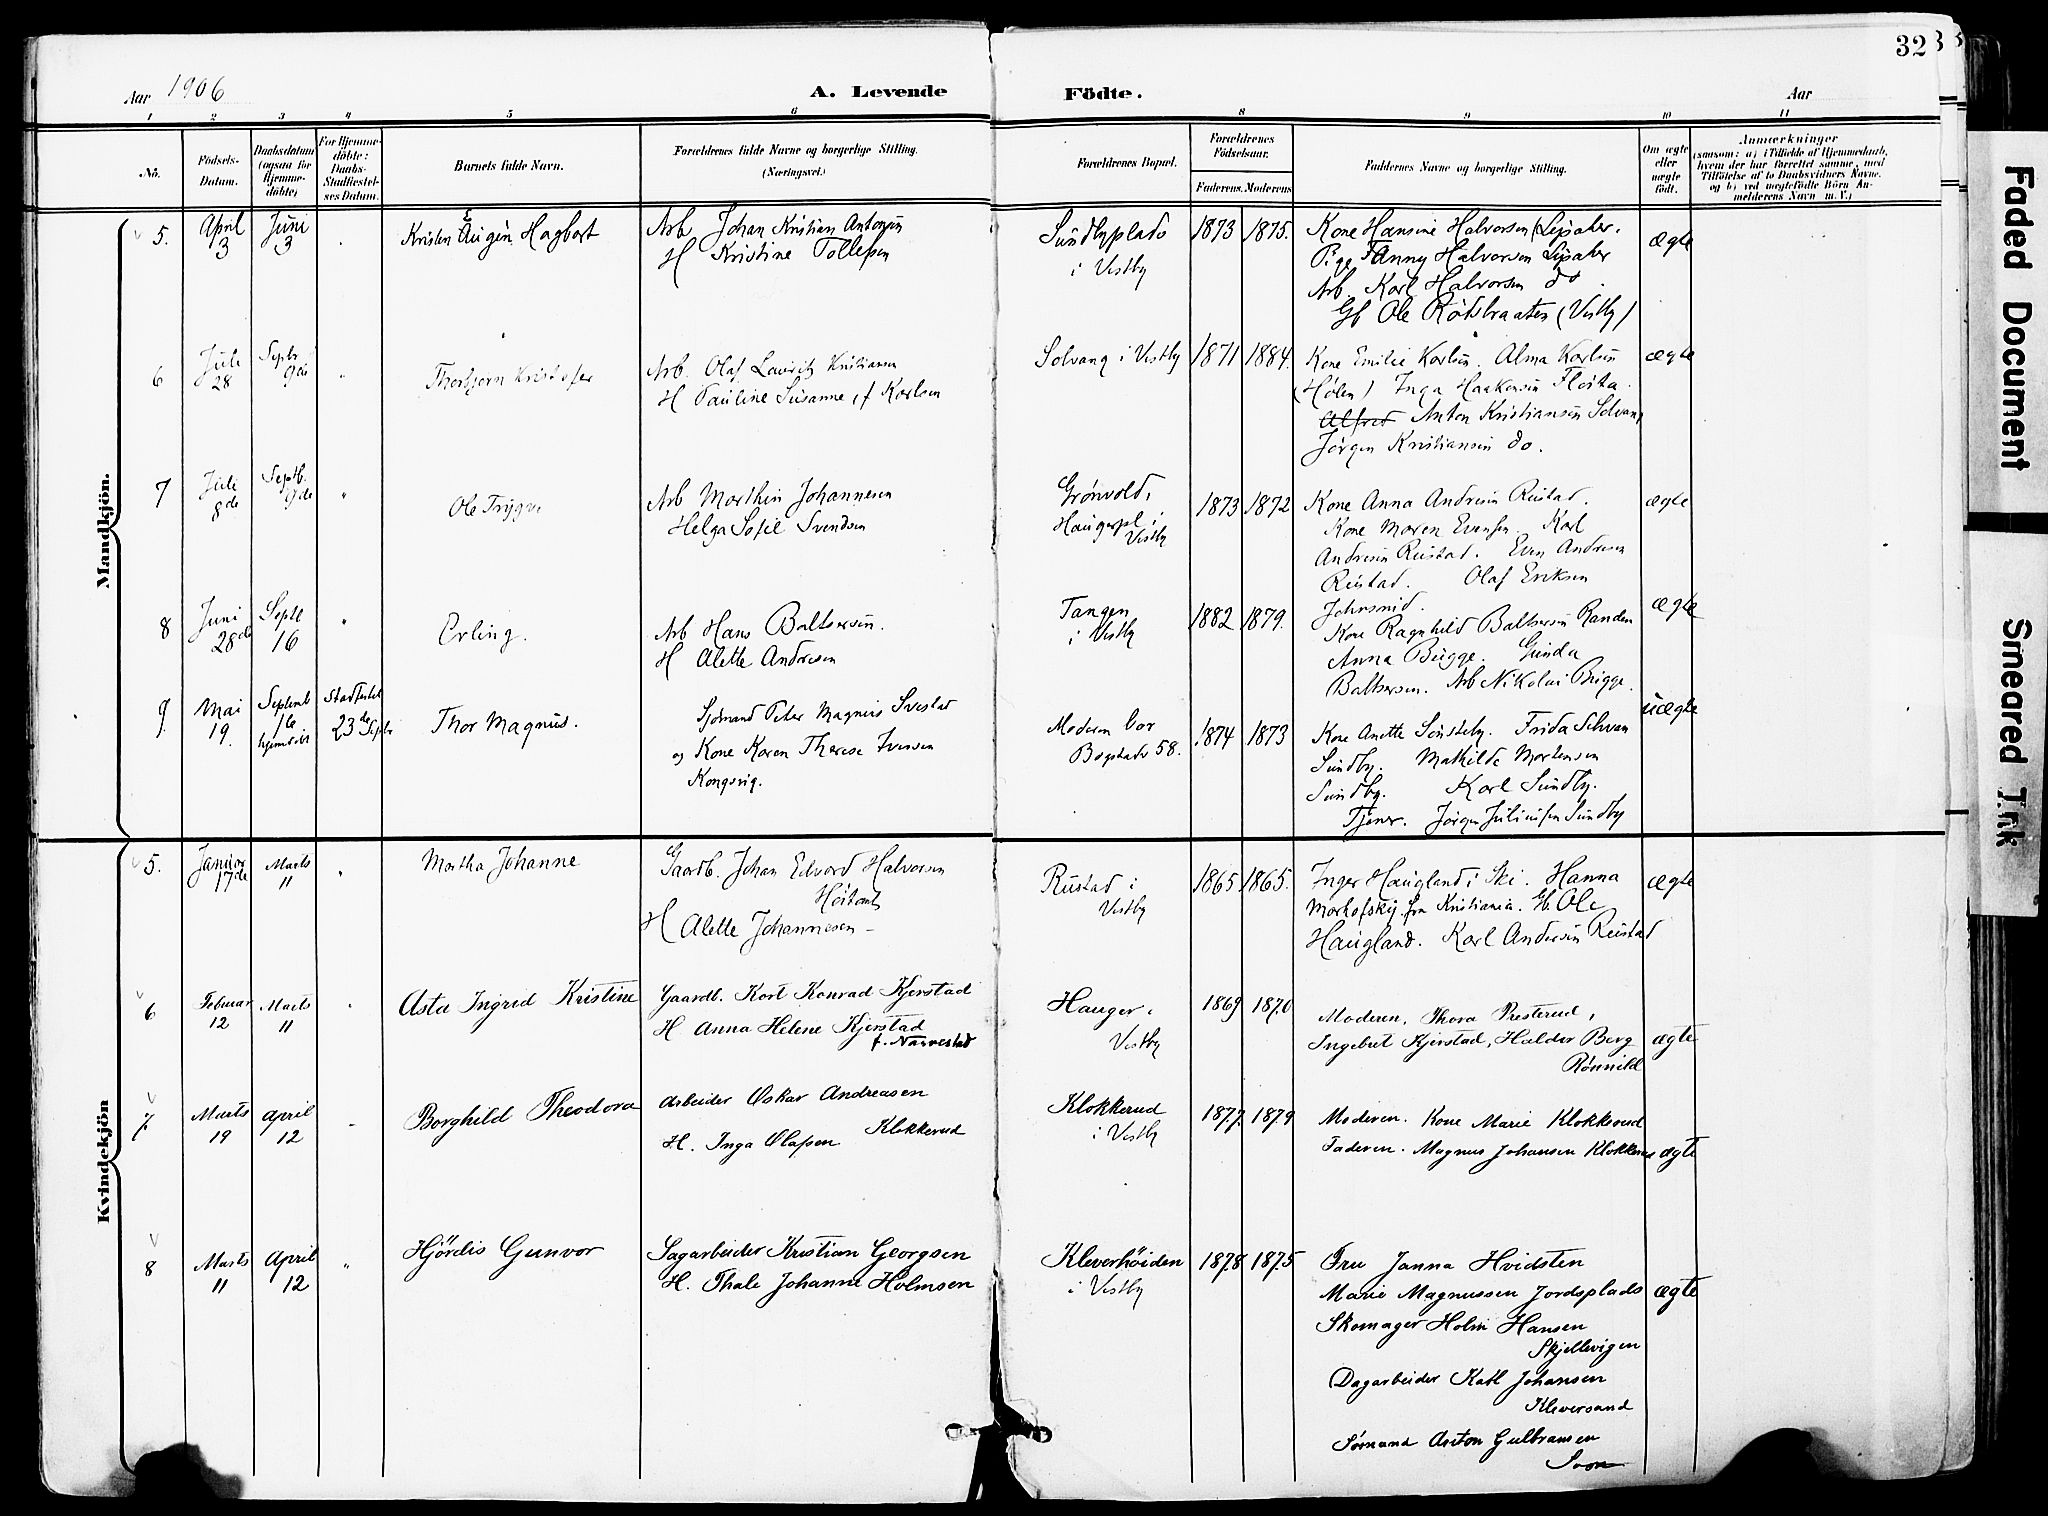 32
Aar 1906
A. Levende Födte.
Aar
1 2 3 4 5 6 8 9 10 11
No.
Födsels-Datum.
Daabsdatum (ogsaa for Hjemme-döbte)
For Hjemme-döbte: Daabs-Stadfæstel-ses Datum.
Barnets fulde Navn.
Forældrenes fulde Navne og borgerlige Stilling. (Næringsvei.)
Forældrenes Bopæl.
Forældrenes Födselsaar.
Faderens. Moderens
Faddernes Navne og borgerlige Stilling.
Om ægte eller uægte født.
Anmærkninger
(saasom: a) i Tilfælde af Hjemmedaab, hvem der har forrettet samme, med Tilföielse af to Daabsvidners Navne. og b) ved uægtefödte Börn An-melderens Navn m. V.)
Mandkjön.
5. April 3 Juni 3 Kristen Eugén Hagbart
Arb Johan Kristian Antonsen
H Kristine Tollefsen
Sundbyplads i Vestby
1873 1875.
Kone Hansine Halvorsen (Lysaker.
Pige Fanny Halvorsen Lysaker
Arb. Karl Halvorsen do
Gb Ole Rødsbraaten (Vestby)
ægte
6 Juli 28 Septr 9de " Thorbjørn Kristofer
Arb. Olaf Lauritz Kristiansen
H Pauline Susanne, f Karlsen
Solvang i Vestby
1871 1884.
Kone Emilie Karlsen. Alma Karlsen
(Hølen) Inga Haakensen Fløsta.
Alfred Anton Kristiansen Solvang
Jørgen Kristiansen do.
ægte
7 Juli 8de Septb. 9de " Ole Trygve
Arb Marthin Johannesen
Helga Sofie Svendsen
Grønvold, Haugerpl i Vestby
1873 1872
Kone Anna Andresen Rustad.
Kone Maren Evensen. Karl
Andresen Rustad. Even Andresen
Rustad. Olaf Eriksen
ægte
8 Juni 28de Septe 16 " Erling.
Arb Hans Baltsersen.
H Alette Andresen
Tangen i Vestby
1882 1879.
Kone Ragnhild Baltsersen Randem
Anna Bugge. Gunda
Baltsersen. Arb Nikolai Brigge.
ægte
9. Mai 19. Septemb 16 hjemdøbt Stadfestet 23de Septr Thor Magnus.
Sjømand Peter Magnus Svestad
og Kone Karen Therese Iversen
Kongsvig.
Moderen bor Bogstadv 58.
1874 1873
Kone Anette Sønsteby. Frida Schvan
Sundby. Mathilde Mortensen
Sundby. Karl Sundby.
Tjener. Jørgen Juliussen Sundby
uægte
Kvindekjön
5. Januar 17de Marts 11 " Martha Johanne
Gaardb. Johan Edvard Halvorsen
H Alette Johannesen -
Rustad i Vestby
1865 1865.
Inger Haugland i Ski. Hanna
Morkofsky fra Kristiania. Gb. Ole
Haugland. Karl Andersen Rustad
ægte
6 Februar 12 Marts 11 " Asta Ingrid Kristine
Gaardb. Kort Konrad Kjerstad
H Anna Helene Kjerstad
f. Narvestad
Hauger i Vestby
1869 1870
Moderen, Thora Presterud,
Ingebret Kjerstad, Halder Berg
Rønnild
ægte
7. Marts 19 April 12 Borghild Theodora
Arbeider Oskar Andreasen
Klokkerud
H. Inga Olafsen
Klokkerud i Vestby
1877. 1879
Moderen. Kone Marie Klokkerud
Faderen. Magnus Johansen Klokkerud
ægte
8 Marts 11 April 12 " Hjördis Gunvor
Sagarbeider Kristian Georgsen
H. Thale Johanne Holmsen
Kleverhöiden i Vestby
1878 1875
Fru Janna Hvidsten
Marie Magnussen Jordsplads
Skomager Holm Hansen
Skjellevigen
Dagarbeider Karl Johansen
Kleversand
Sømand Anton Gulbransen
Soon
ægte
Faded Document
Smeared Ink